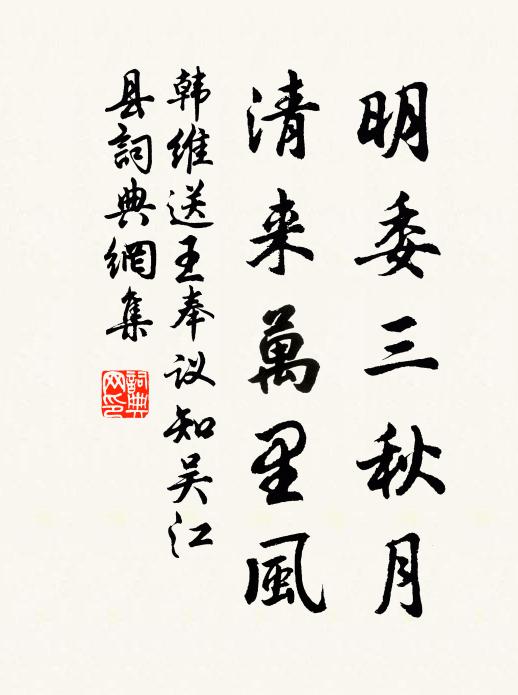 明委三秋月
清来萬里風
韩维送王奉议知吴江
县詞典網集
詞典
网印